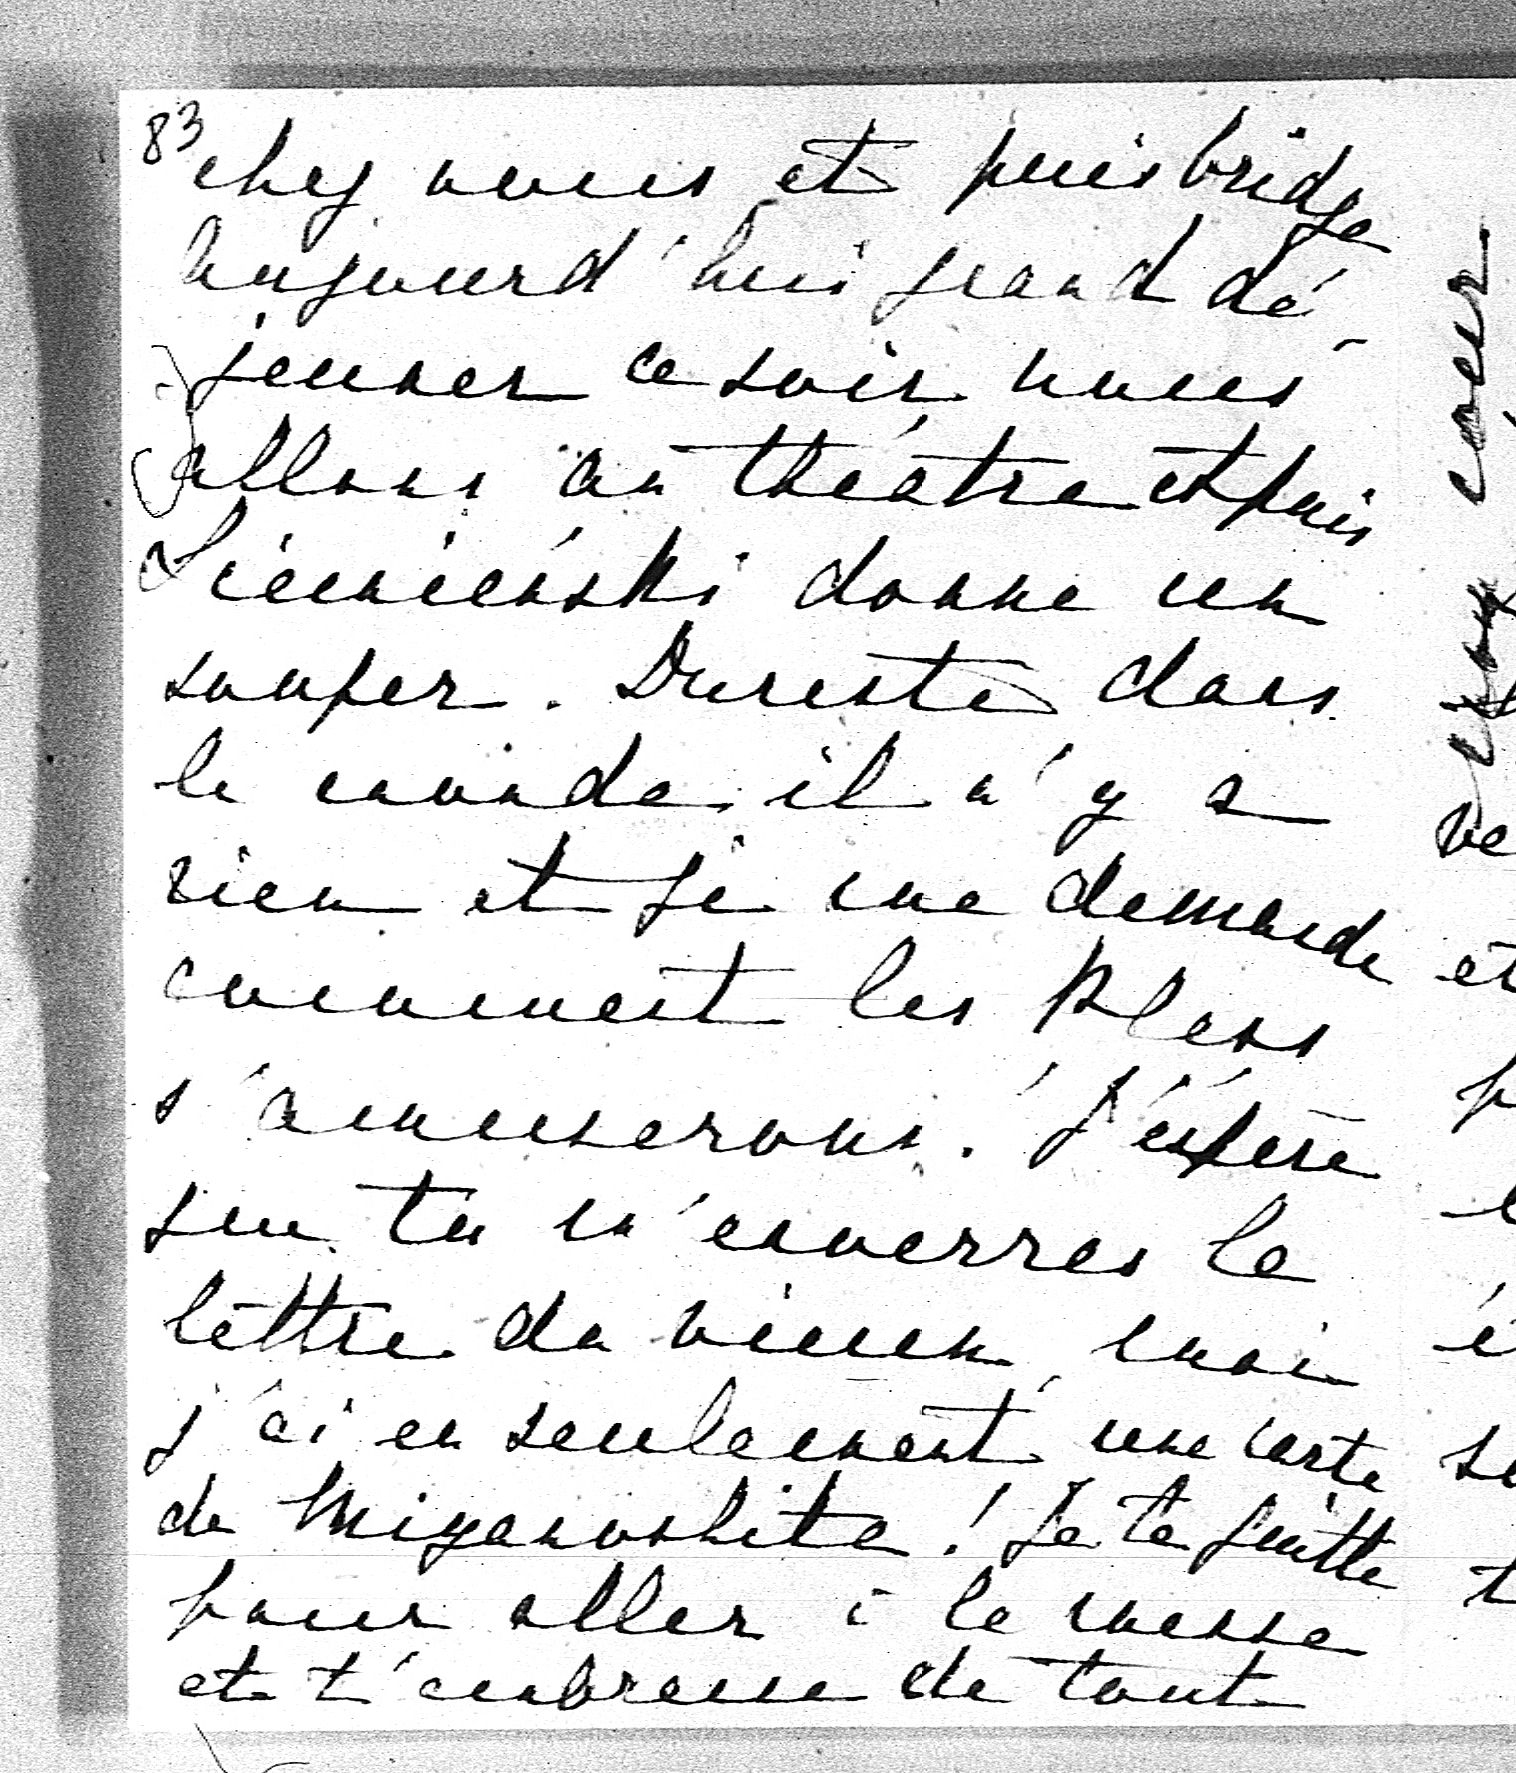 83
chez nous et puis bridge
Aujourd'hui grand dé-
jeuner ce soir nous
allons au théâtre et puis
donne un
souper. Dureste dans
le monde il n'y a
rien et je me demande
comment les Pless
s'amuserons! J'espère
que tu m'enverras la
lettre du vieux, moi
j'ai eu seulement une carte
de Miyanoshita! Je te quitte
pour aller à la messe
et t'embrasse de tout
mon coeur